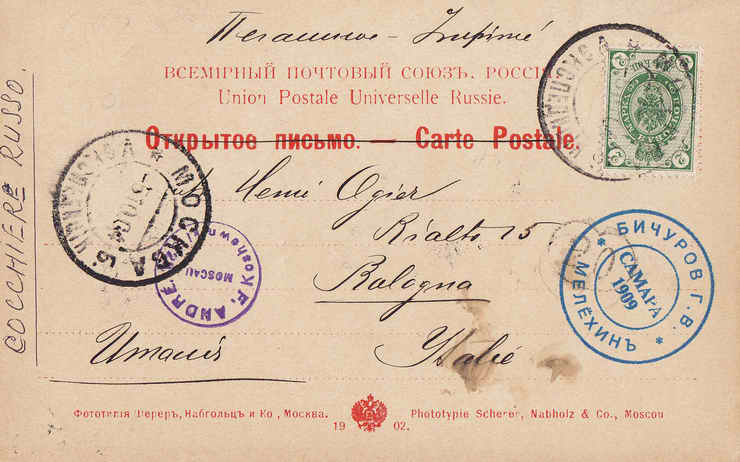 Печатное - Imprimé
ВСЕМІРНЫЙ ПОЧТОВЫЙ СОЮЗЪ. РОССІЯ
Union Postale Universelle Russie.
Открытое письмо. — Carte Postale.
Henri Ogier
Rialto 15
Bologna
Италія
Italie
COCCHIERE RUSSO.
МОСКВА
F. ANDRÉ
MOSCAU
* БИЧУРОВ Г.В. *
МЕЛЁХИНЪ
САМАРА
1909
2
2
2
2
Фототипія Шереръ, Набгольцъ и Ко, Москва.
Phototypie Scherer, Nabholz & Co., Moscou
19 02.